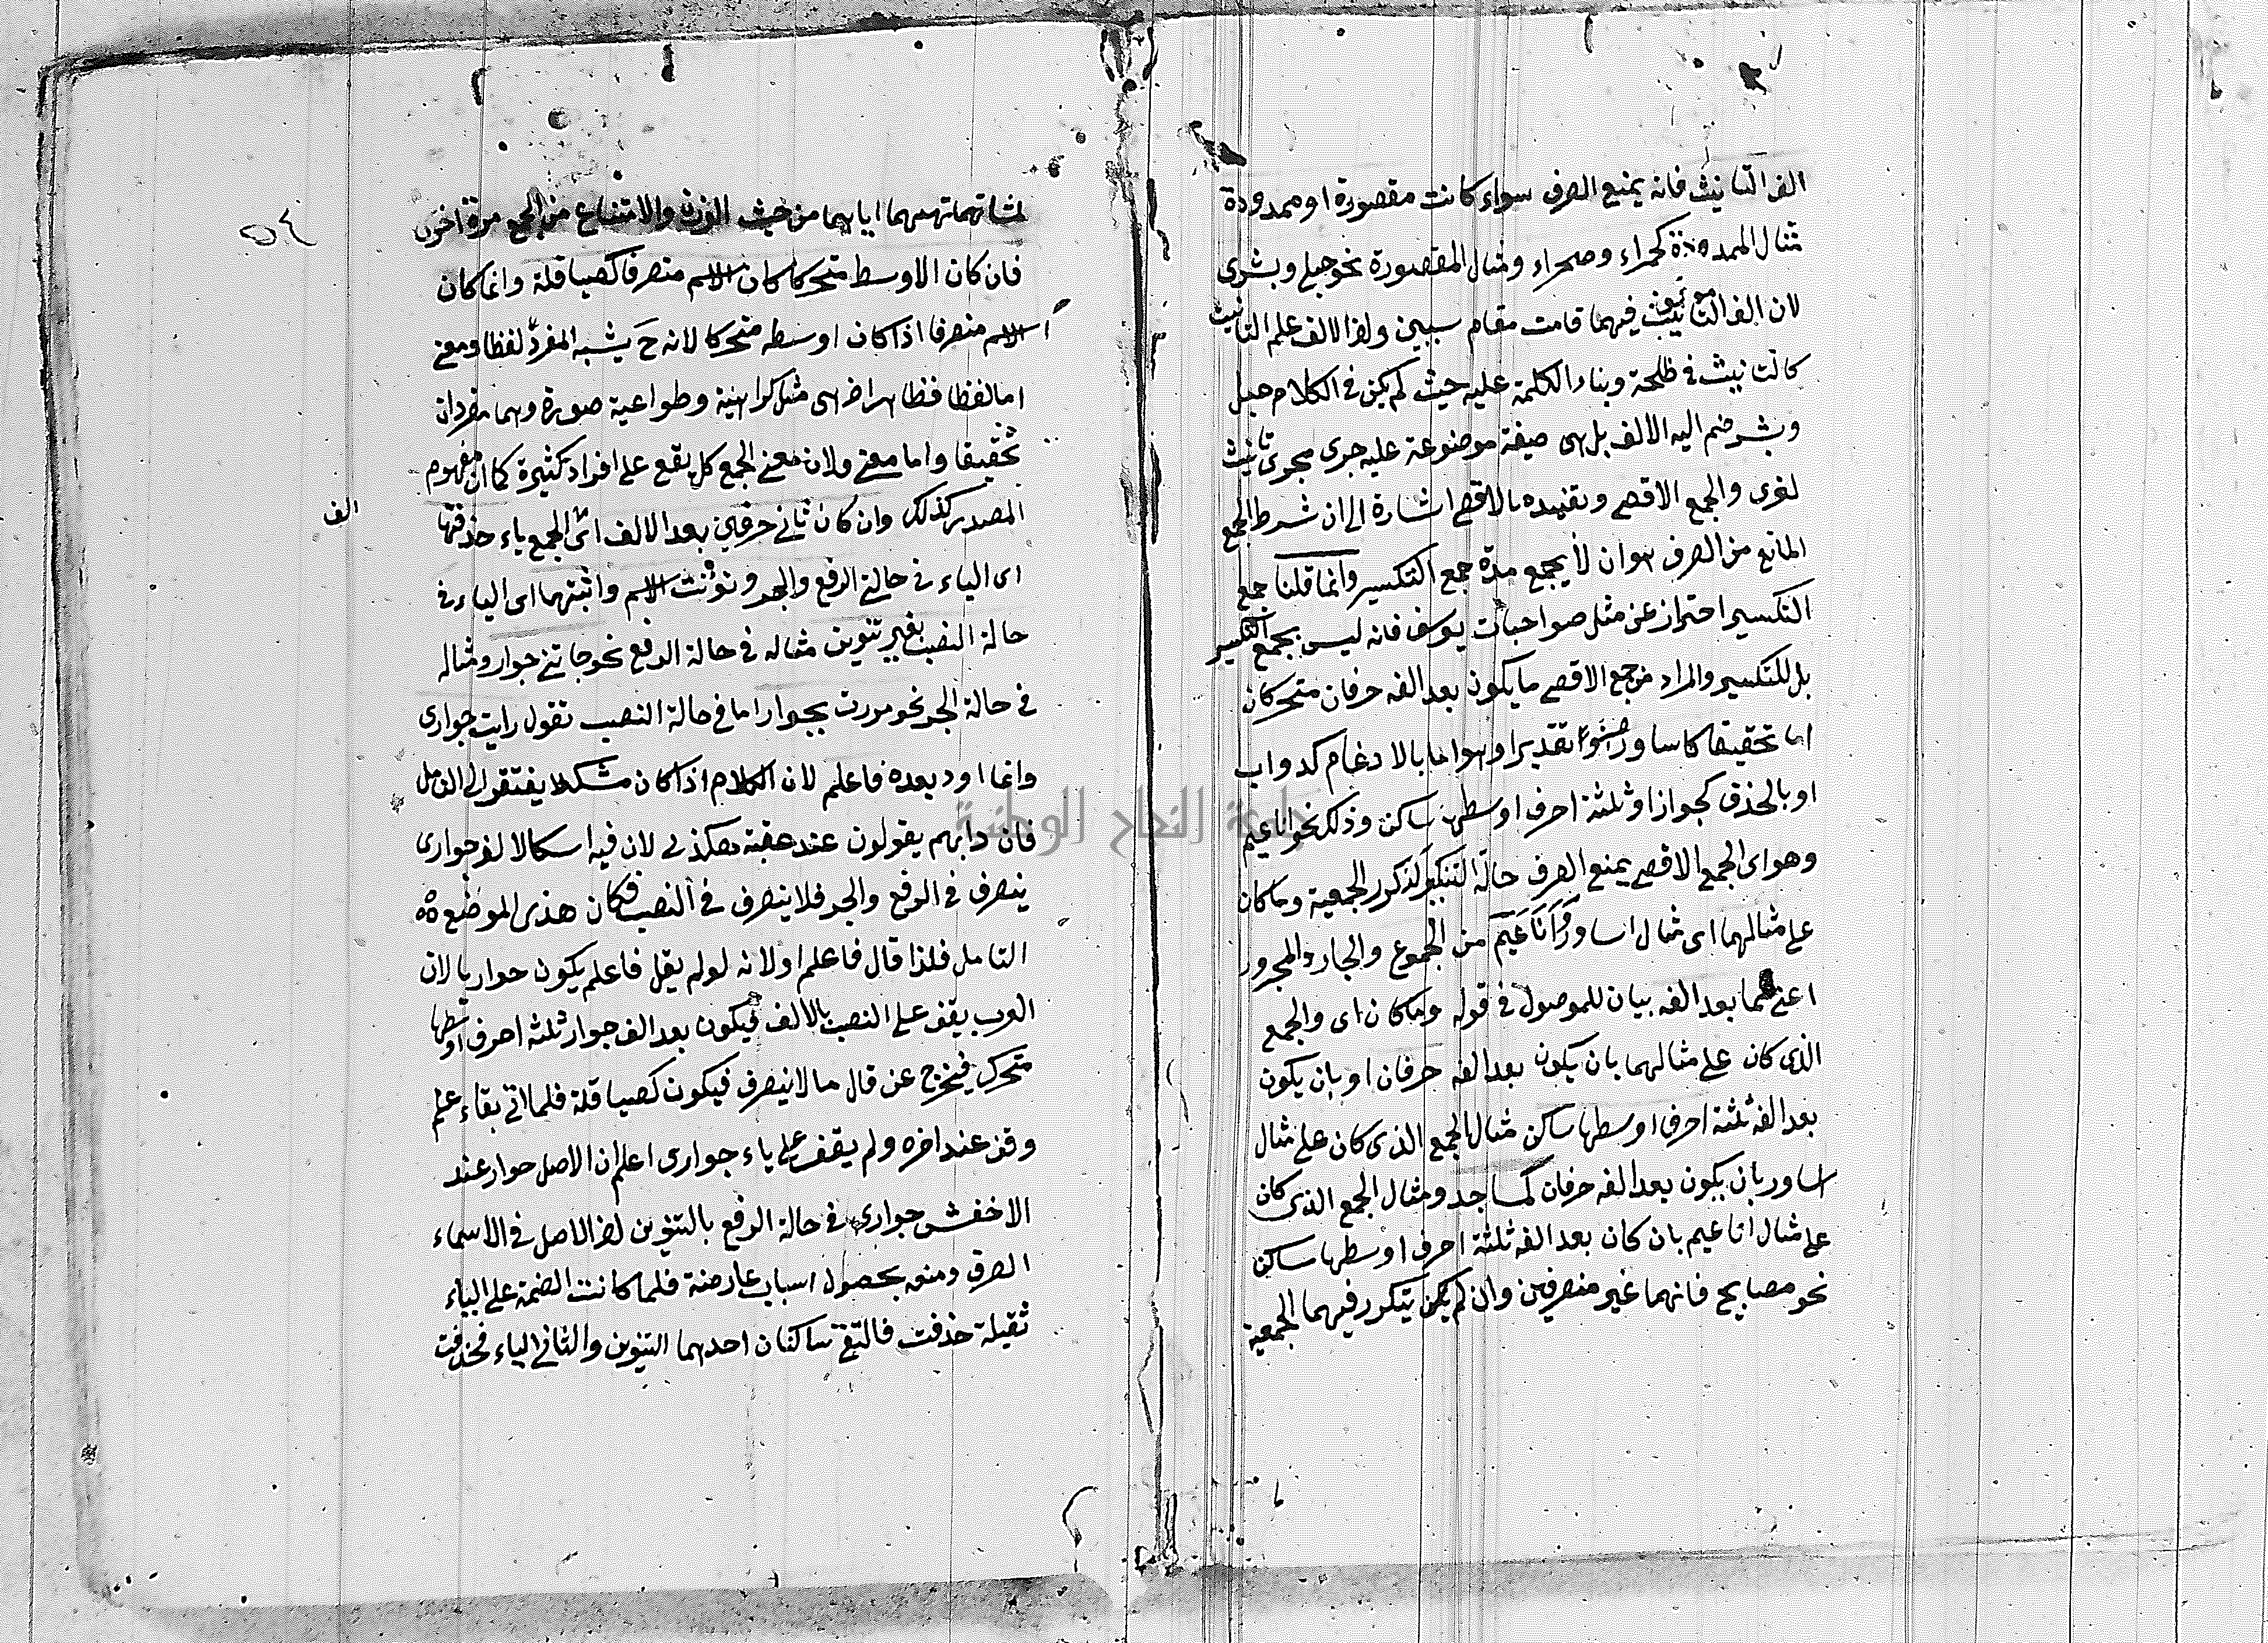 الف التانيث فانه يمنع الصرف سواء كانت مقصورة او ممدودة
مثال الممدودة كحمراء وصحراء ومثال المقصورة نحو حبلى وبشرى
لان الف التانيث فيهما قامت مقام سببين ولان الالف علم التانيث
كالتانيث في طلحة وبناء الكلمة عليه حيث لم يكن في الكلام حبل
وبشر ضم اليه الالف بل هى صيغة موضوعة عليه جرى مجرى تانيث
لغرى والجمع الاقصى وتقييده بالاقصى اشارة الى ان شرط الجمع
المانع من الصرف هو ان لا يجمع مدة جمع التكسير وانما قلنا جمع
التكسير احتراز عن مثل صواحبات يوسف فانه ليس بجمع التكسير
بل للتكسير والمراد من جمع الاقصى ما يكون بعد الفه حرفان متحركان
اما تحقيقا كاساور تقديرا وهو اما بالادغام كدواب
او بالحذف كجوار او ثلثة احرف اوسطها ساكن وذلك نحو اناعيم
وهو اى الجمع الاقصى يمنع الصرف حالة التنكير لتكرر الجمعية وما كان
على مثالهما اى مثال اساور واناعيم من الجموع والجار والمجرور
اعنى بعد الفه بيان للموصول في قوله وما كان اى والجمع
الذى كان على مثالهما بان يكون بعد الفه حرفان او بان يكون
بعد الفه ثلثة احرف اوسطها ساكن مثال الجمع الذى كان على مثال
اساور بان يكون بعد الفه حرفان كمساجد ومثال الجمع الذى كان
على مثال اناعيم بان كان بعد الفه ثلثة احرف اوسطها ساكن
نحو مصابيح فانهما غير منصرفين وان لم يكن يتكرر فيهما الجمعية
٥٤
لمشابهتهما اياهما من حيث الوزن والامتناع من الجمع مرة اخرى
فان كان الاوسط متحركا كان الاسم منصرفا كصياقلة وانما كان
الاسم منصرفا اذا كان اوسطه متحركا لانه ح يشبه المفرد لفظا ومعنى
اما لفظا فظاهر اذ هى مثل كراهية وطواعية صورة وهما مفردان
تحقيقا واما معنى ولان معنى الجمع كل يقع على افراد كثيرة كما ان مفهوم
المصدر كذلك وان كان ثانى حرفين بعد الالف اى الجمع ياء حذفتها
الف
اى الياء في حالتى الرفع والجر ونونت الاسم واثبتها اى الياء في
حالة النصب بغير تنوين مثاله في حالة الرفع نحو جاتنى جوار ومثاله
في حالة الجر نحو مررت بجوار اما في حالة النصب تقول رايت جوارى
وانما اورد بعده فاعلم لان الكلام اذا كان مشكلا يفتقر الى التامل
فان دابهم يقولون عند عقبة هكذى لان فيه اسكالا لان جوارى
ينصرف في الرفع والجر فلا ينصرف في النصب فكان هذى الموضع
التامل فلذا قال فاعلم اولانه لو لم يقل فاعلم يكون جواريا لان
العرب يقف على النصب بالالف فيكون بعد الف جوار ثلثة احرف اوسطها
متحرك فيخرج عن قال ما لا ينصرف فيكون كصياقلة فلما اتى بقاء علم
وقف عند اخره ولم يقف على ياء جوارى اعلم ان الاصل جوار عند
الاخفش جوارى في حالة الرفع بالتنوين لان الاصل في الاسماء
الصرف ومنعه بحصول اسباب عارضة فلما كانت الضمة على الياء
ثقيلة حذفت فالتقى ساكنان احدهما التنوين والثانى الياء فحذفت
جامعة النجاح الوطنية